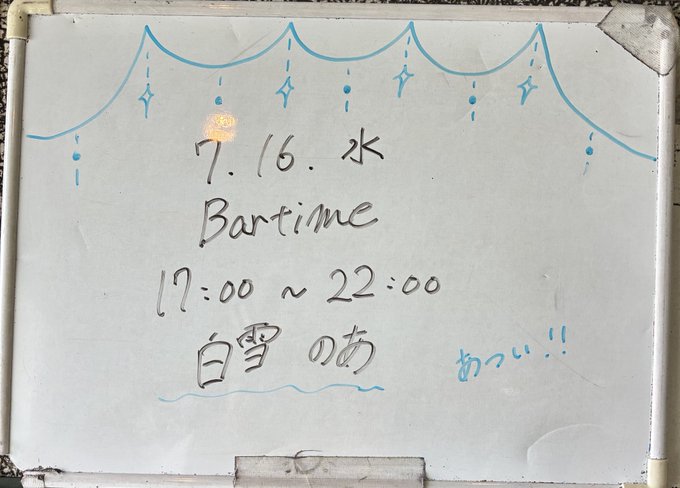 7.16.水
Bartime
17:00～22:00
白雪 のあ
あつい!!